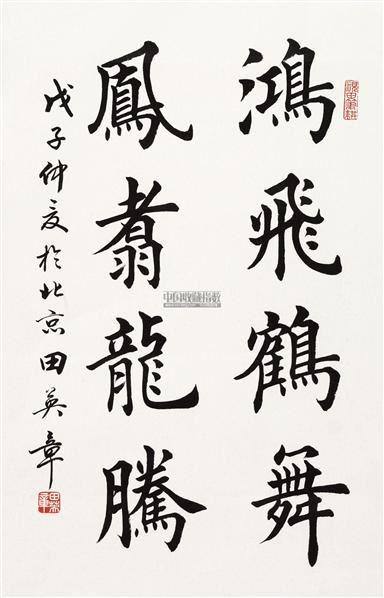 鴻飛鶴舞
鳳翥龍騰
戊子仲夏於北京田英章
中国收藏指数